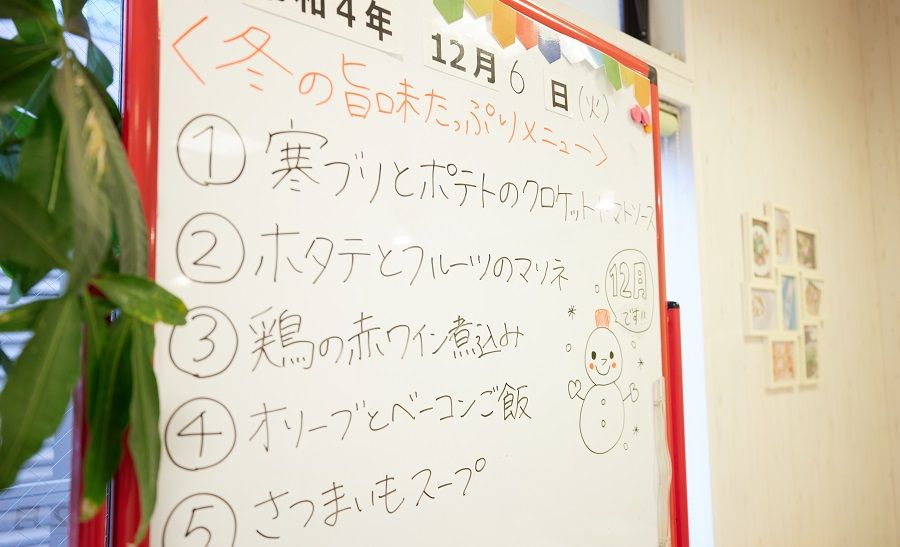 令和4年
12月6日(火)
<冬の旨味たっぷりメニュー>
① 寒ブリとポテトのクロケットトマトソース
② ホタテとフルーツのマリネ
③ 鶏の赤ワイン煮込み
④ オリーブとベーコンご飯
⑤ さつまいもスープ
12月
です!!